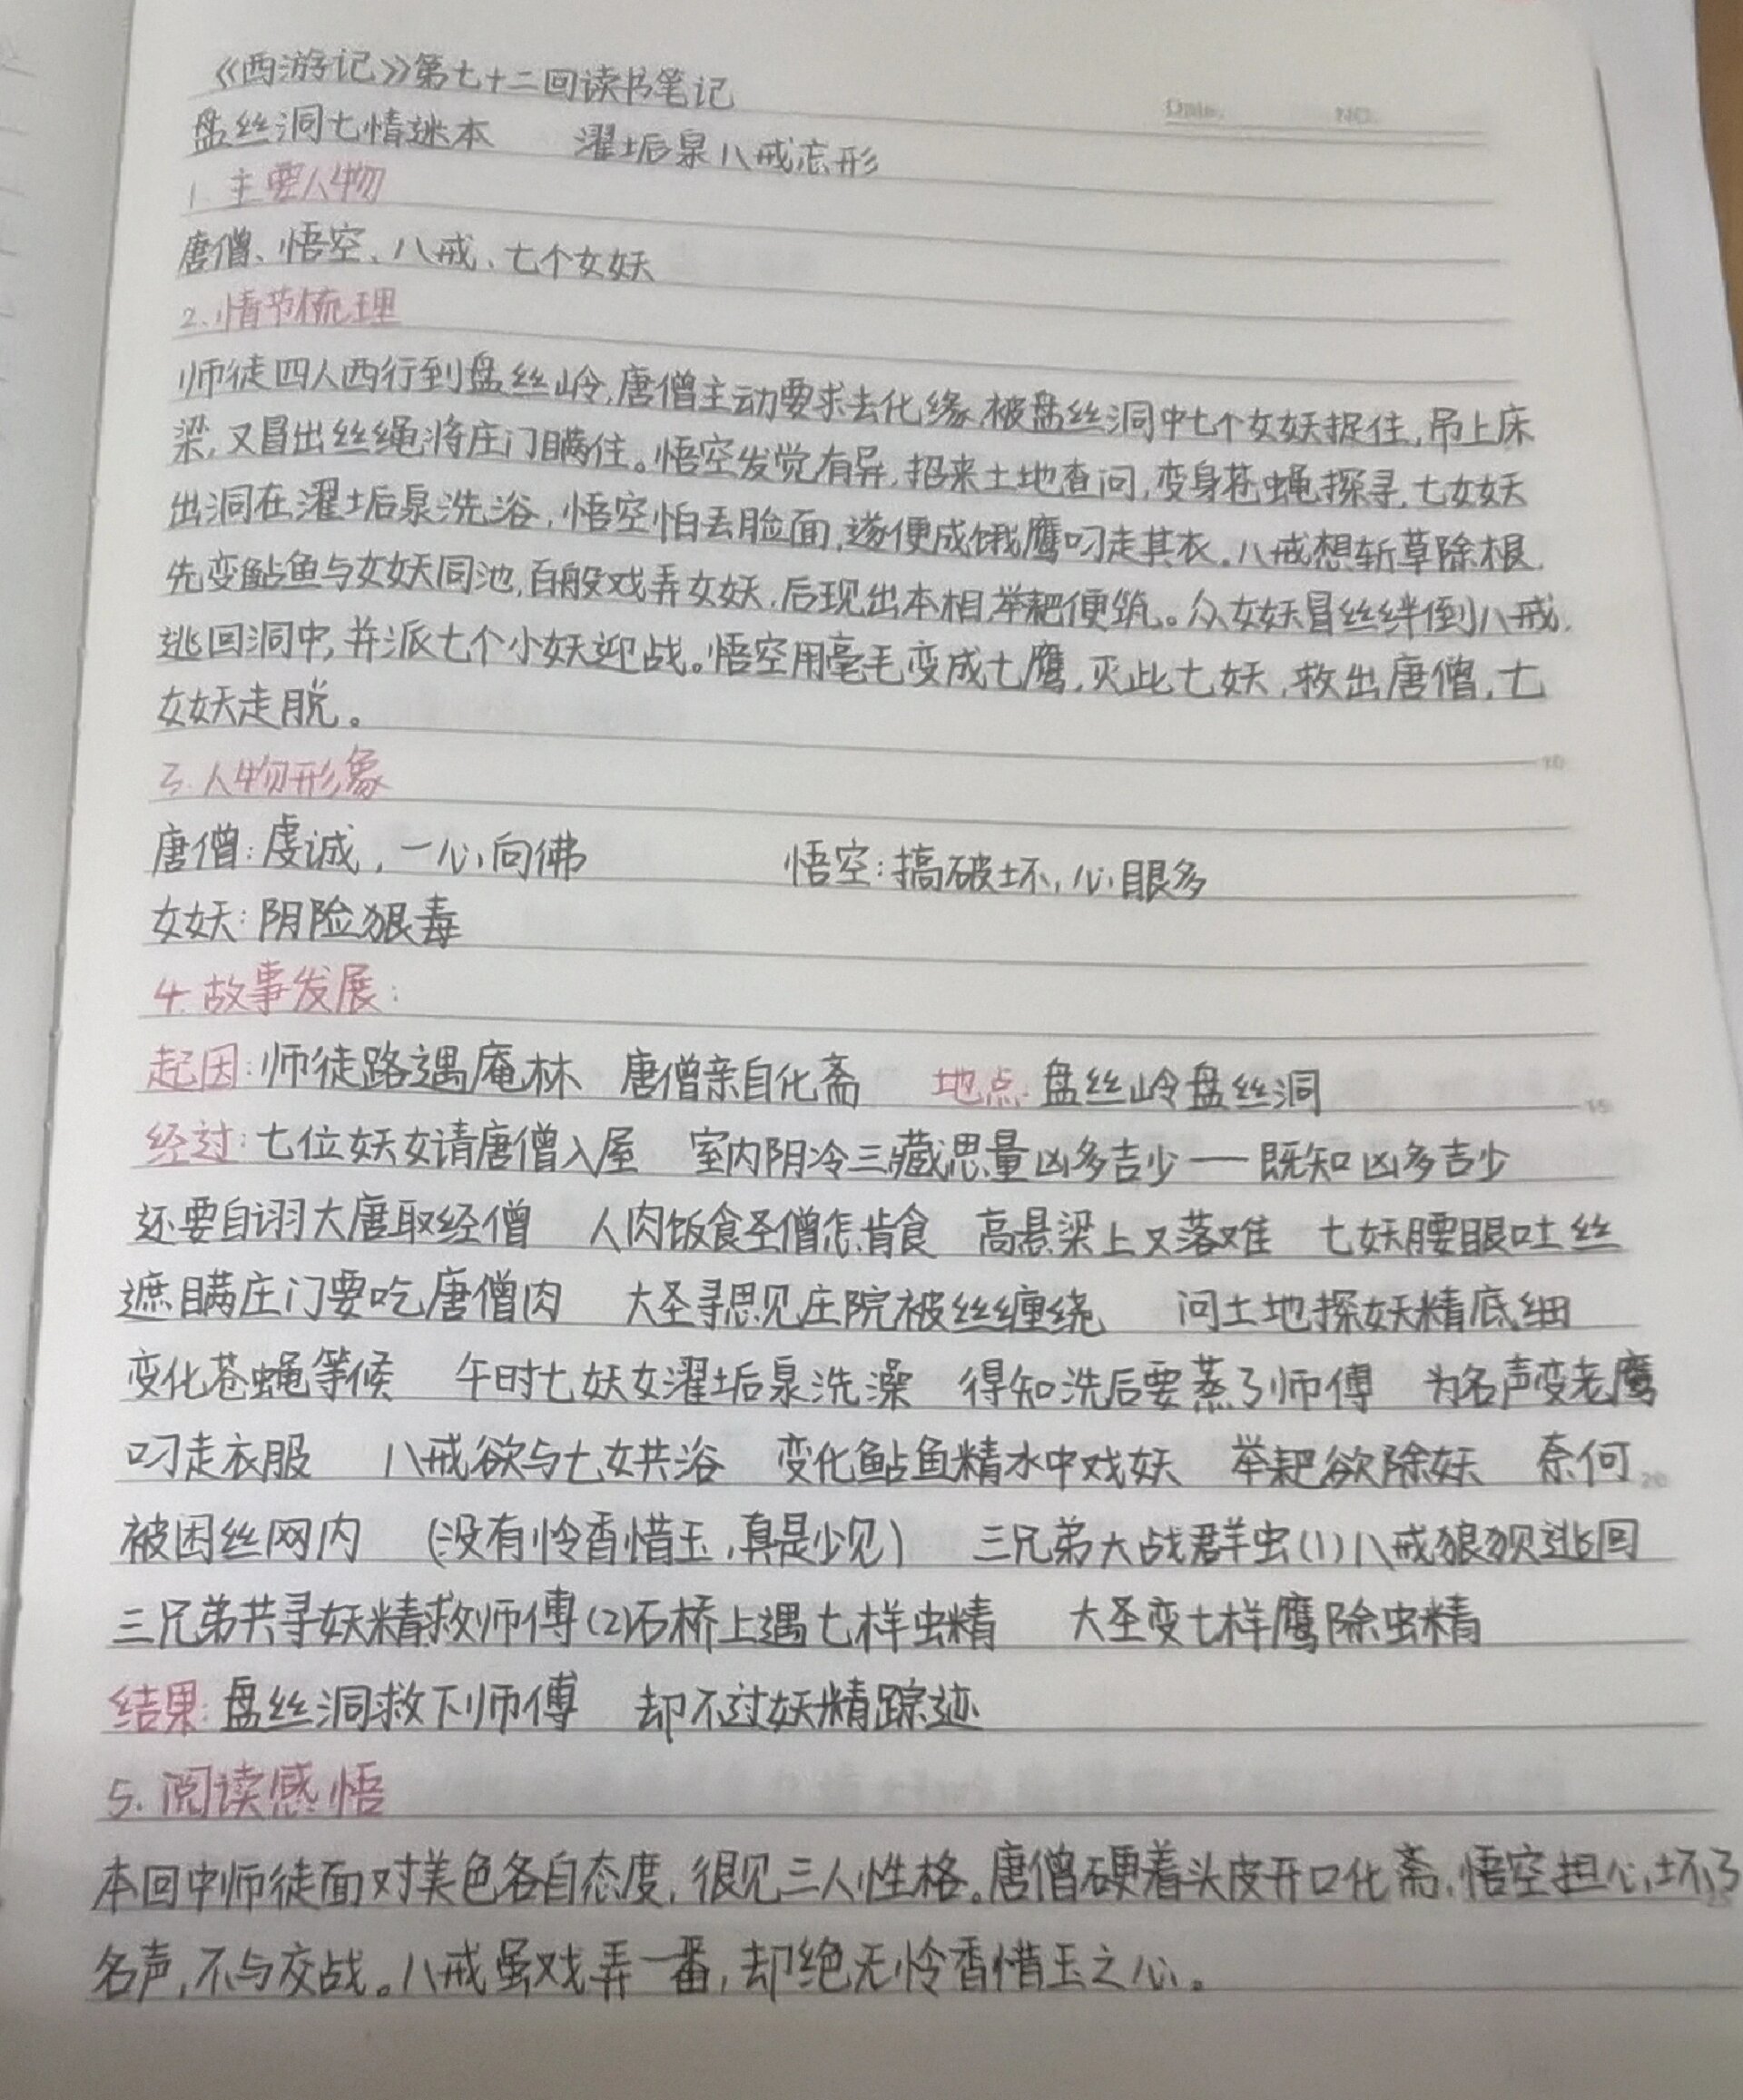 《西游记》第七十二回读书笔记
Date. NO.
盘丝洞七情迷本 濯垢泉八戒忘形
1. 主要人物
唐僧、悟空、八戒、七个女妖
2. 情节梳理
师徒四人西行到盘丝岭,唐僧主动要求去化缘,被盘丝洞中七个女妖捉住,吊上床
梁,又冒出丝绳将庄门瞒住。悟空发觉有异,招来土地查问,变身苍蝇探寻,七女妖
出洞在濯垢泉洗浴,悟空怕丢脸面,遂便成饿鹰叼走其衣。八戒想斩草除根,
先变鲇鱼与女妖同池,百般戏弄女妖,后现出本相,举耙便筑。众女妖冒丝绊倒八戒,
逃回洞中,并派七个小妖迎战。悟空用毫毛变成七鹰,灭此七妖,救出唐僧,七
女妖走脱。
10
3. 人物形象
唐僧:虔诚,一心向佛 悟空:搞破坏,心眼多
女妖:阴险狠毒
4. 故事发展:
起因:师徒路遇庵林 唐僧亲自化斋 地点:盘丝岭盘丝洞
15
经过:七位妖女请唐僧入屋 室内阴冷三藏思量凶多吉少——既知凶多吉少
还要自诩大唐取经僧 人肉饭食圣僧怎肯食 高悬梁上又落难 七妖腰眼吐丝
遮瞒庄门要吃唐僧肉 大圣寻思见庄院被丝缠绕 问土地探妖精底细
变化苍蝇等候 午时七妖女濯垢泉洗澡 得知洗后要蒸了师傅 为名声变老鹰
叼走衣服 八戒欲与七女共浴 变化鲇鱼精水中戏妖 举耙欲除妖 奈何
20
被困丝网内 (没有怜香惜玉,真是少见) 三兄弟大战群虫(1)八戒狼狈逃回
三兄弟共寻妖精救师傅(2)石桥上遇七样虫精 大圣变七样鹰除虫精
结果:盘丝洞救下师傅 却不过妖精踪迹
5. 阅读感悟
本回中师徒面对美色各自态度,很见三人性格。唐僧硬着头皮开口化斋,悟空担心坏了
名声,不与交战。八戒虽戏弄一番,却绝无怜香惜玉之心。